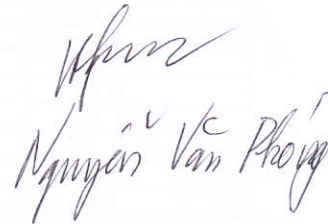 Nguyễn Văn Phóng